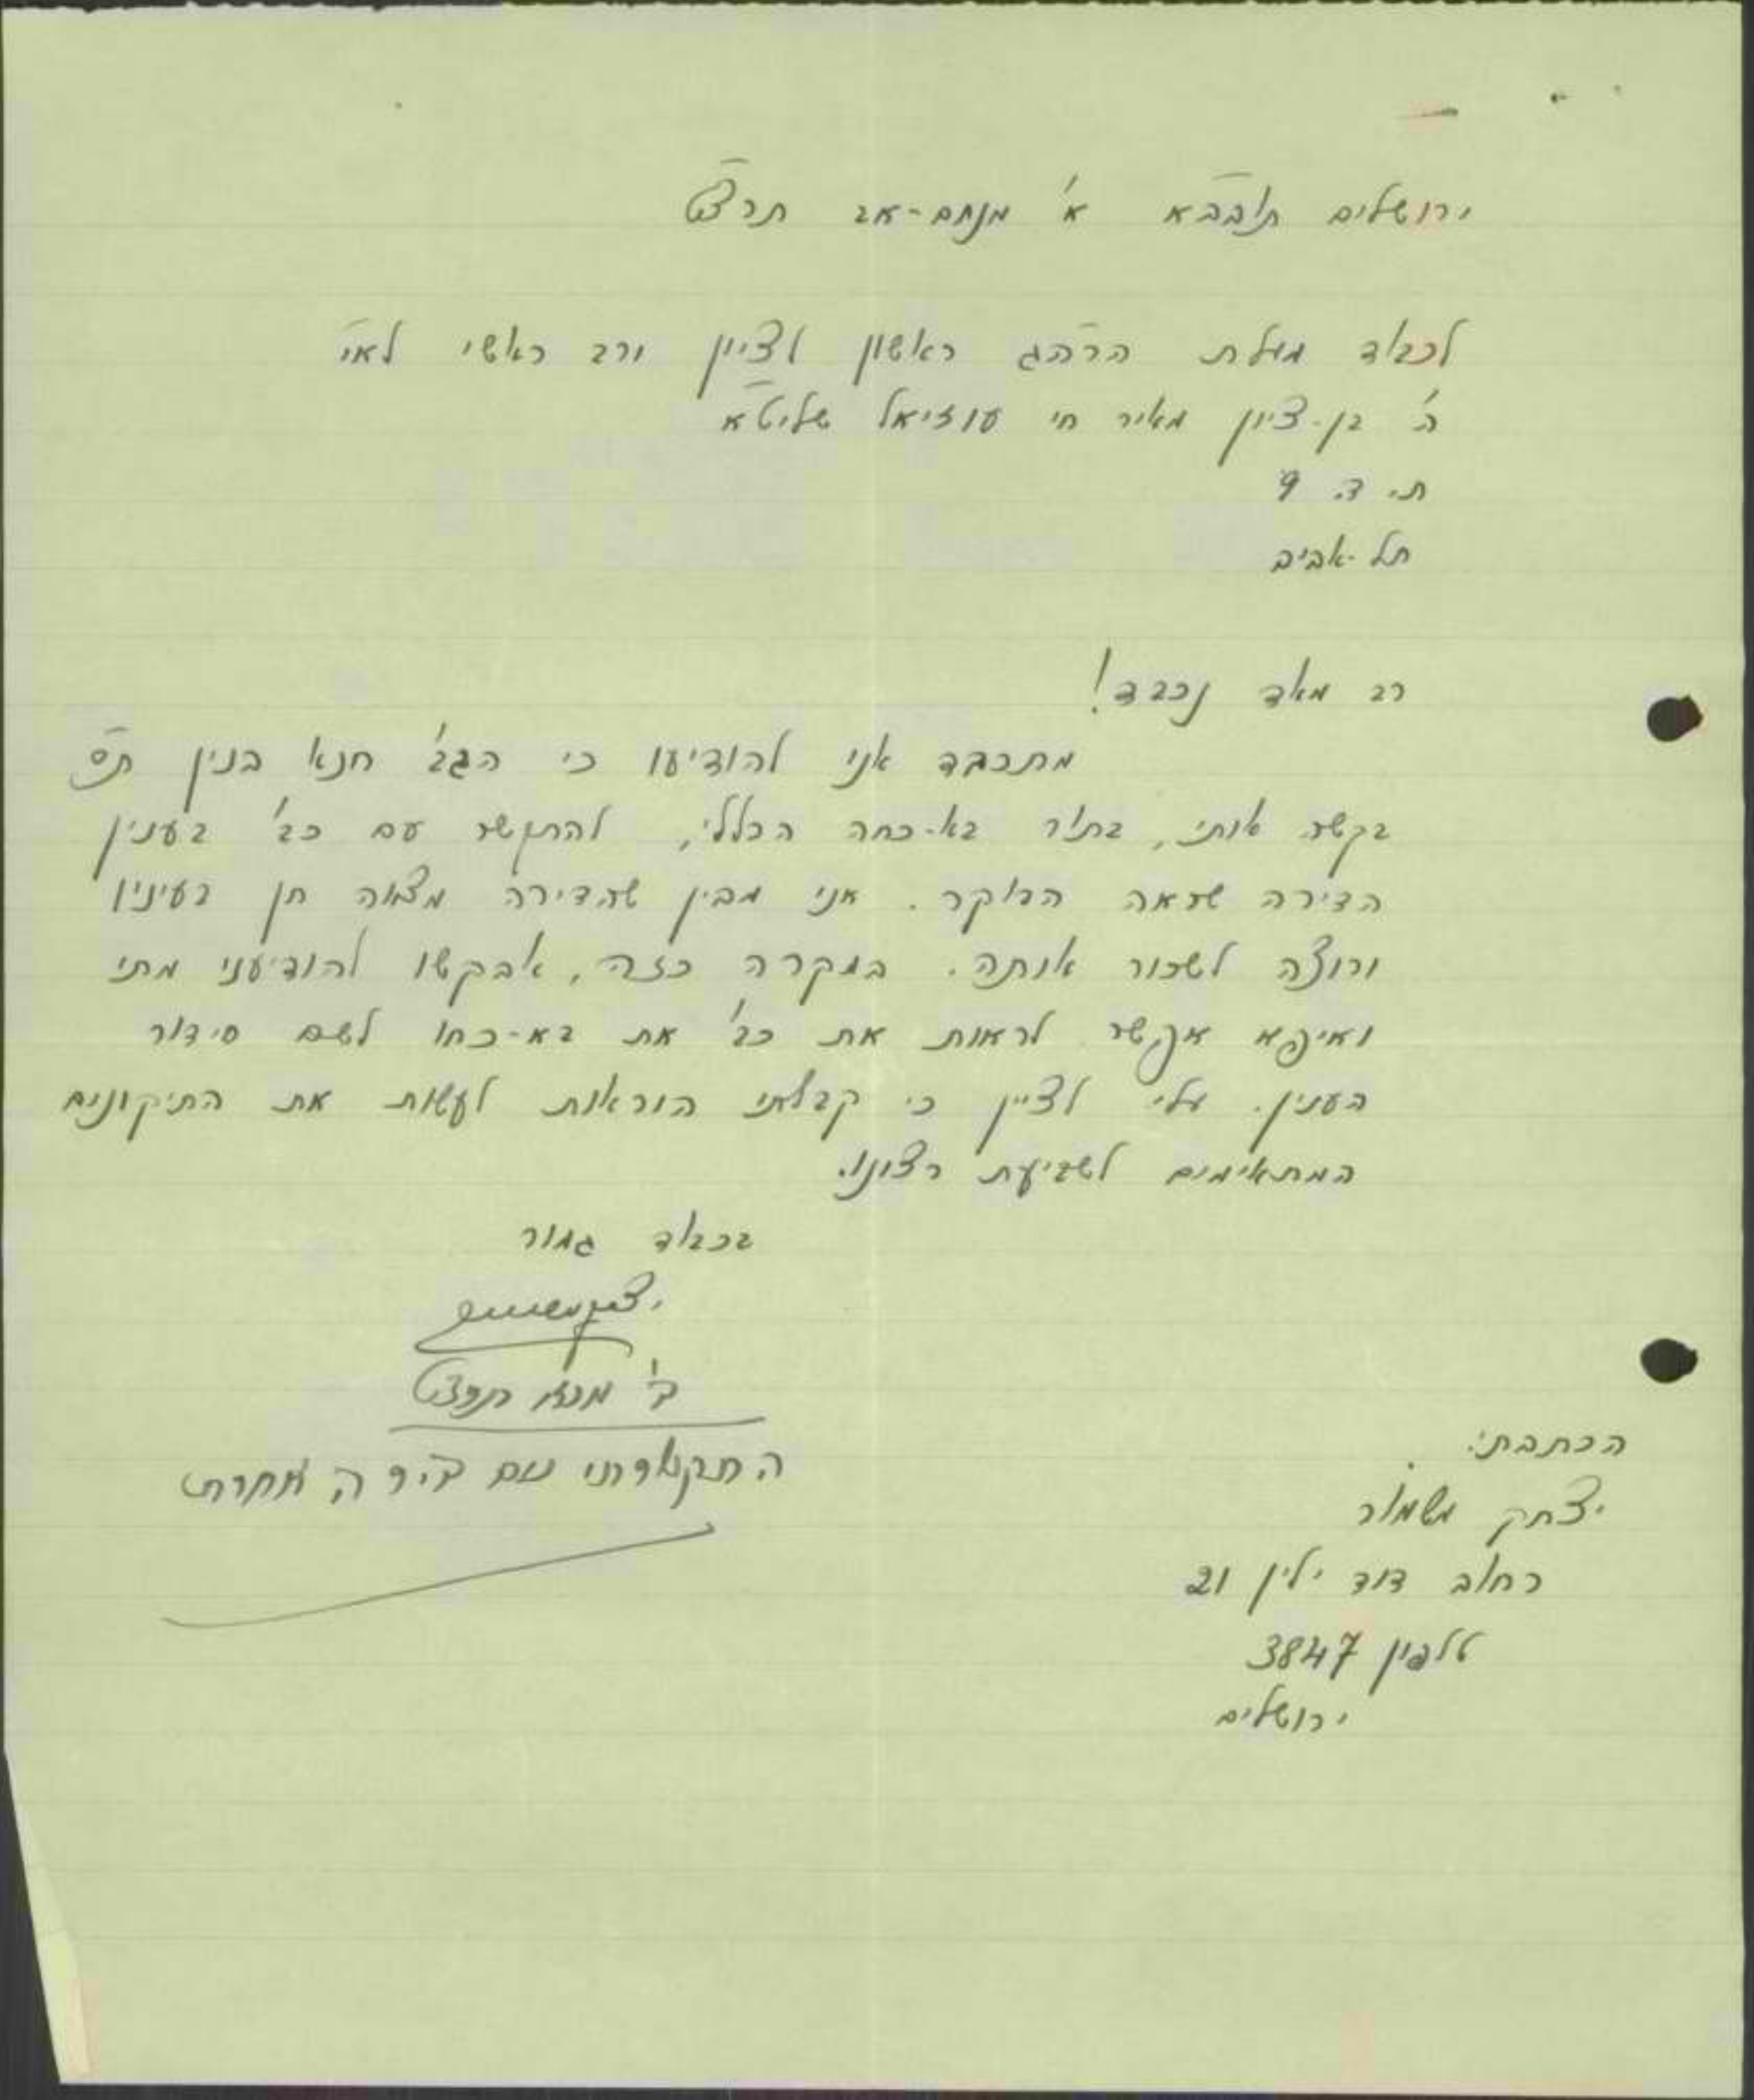 ירושלים תובב״א א׳ מנחם-אב תרצ״ט
לכבוד מעלת הרה״ג ראשון לציון ורב ראשי לא״י
ה׳ בן-ציון מאיר חי עוזיאל שליט״א
ת. ד. 9
תל-אביב
רב מאד נכבד!
מתכבד אני להודיעו כי הגב׳ חנא בנין
בקשה אותי, בתור בא-כחה הכללי, להתקשר עם כב׳ בענין
הדירה שראה הבוקר. אני מבין שהדירה מצאה חן בעיניו
ורוצה לשכור אותה. במקרה כזה, אבקשו להודיעני מתי
ואיפא אפשר לראות את כב׳ את בא-כחו לשם סידור
הענין. עלי לציין כי קבלתי הוראות לעשות את התיקונים
המתאימים לשביעת רצונו.
בכבוד גמור
ב׳ מנ״א תרצ״ט
התקשרתי עם דירה אחרת
הכתבת:
יצחק משמור
רחוב דוד ילין 21
טלפון 3847
ירושלים